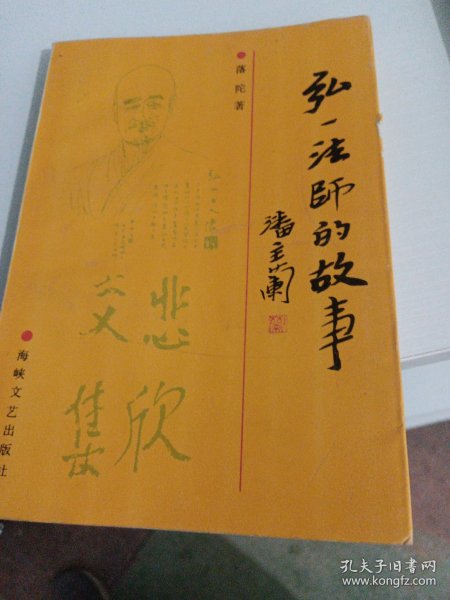 弘一法師的故事
潘主蘭
落陀著
悲欣
交集
海峡文艺出版社
孔夫子旧书网
www.kongfz.com